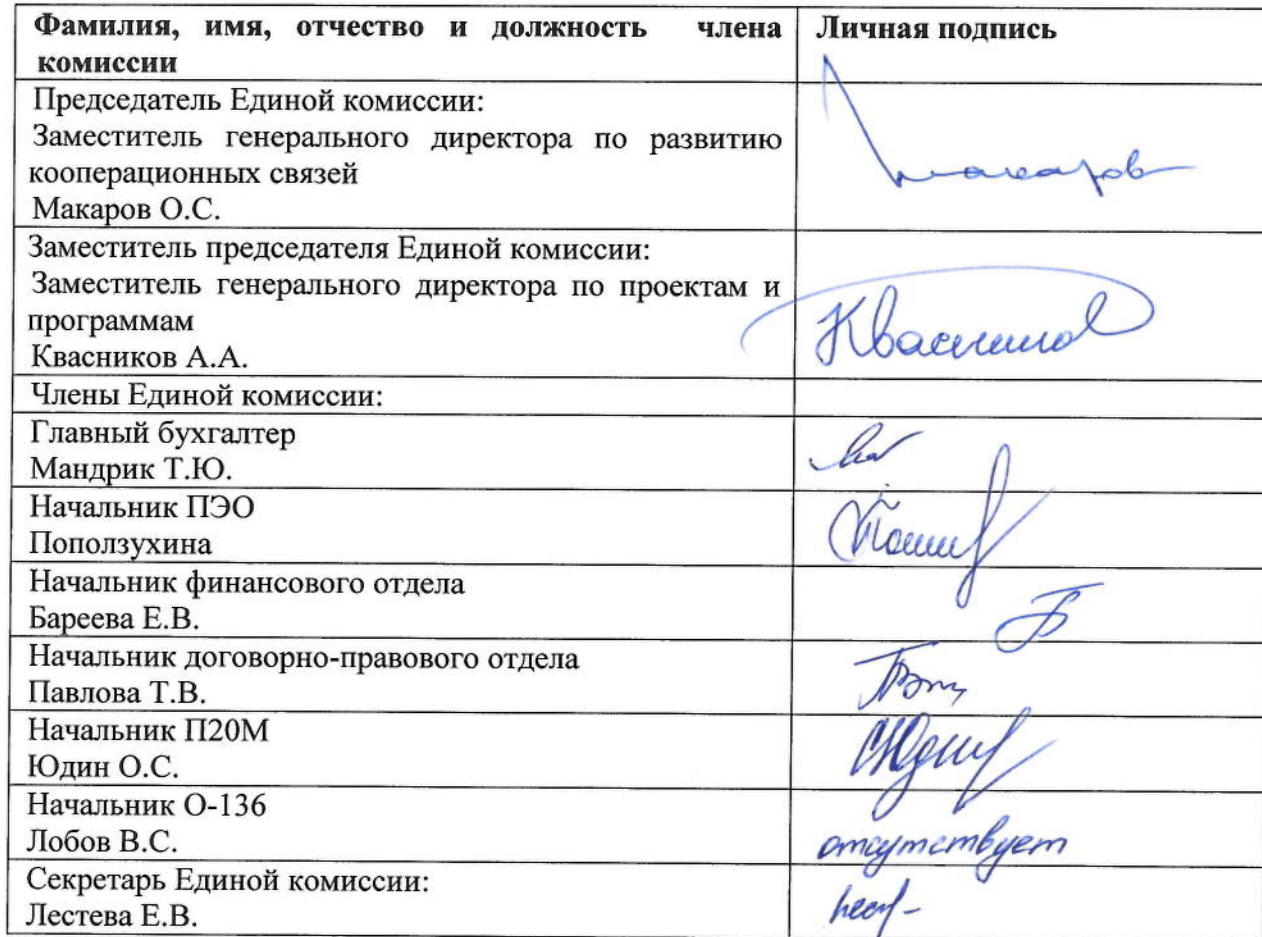 Фамилия, имя, отчество и должность члена Личная подпись
комиссии
Председатель Единой комиссии:
Заместитель генерального директора по развитию
кооперационных связей
Макаров О.С.
Макаров
Заместитель председателя Единой комиссии:
Заместитель генерального директора по проектам и
программам
Квасников А.А.
Члены Единой комиссии:
Главный бухгалтер
Мандрик Т.Ю.
Начальник ПЭО
Поползухина
Начальник финансового отдела
Бареева Е.В.
Начальник договорно-правового отдела
Павлова Т.В.
Начальник П20М
Юдин О.С.
Начальник О-136
Лобов В.С.
отсутствует
Секретарь Единой комиссии:
Лестева Е.В.